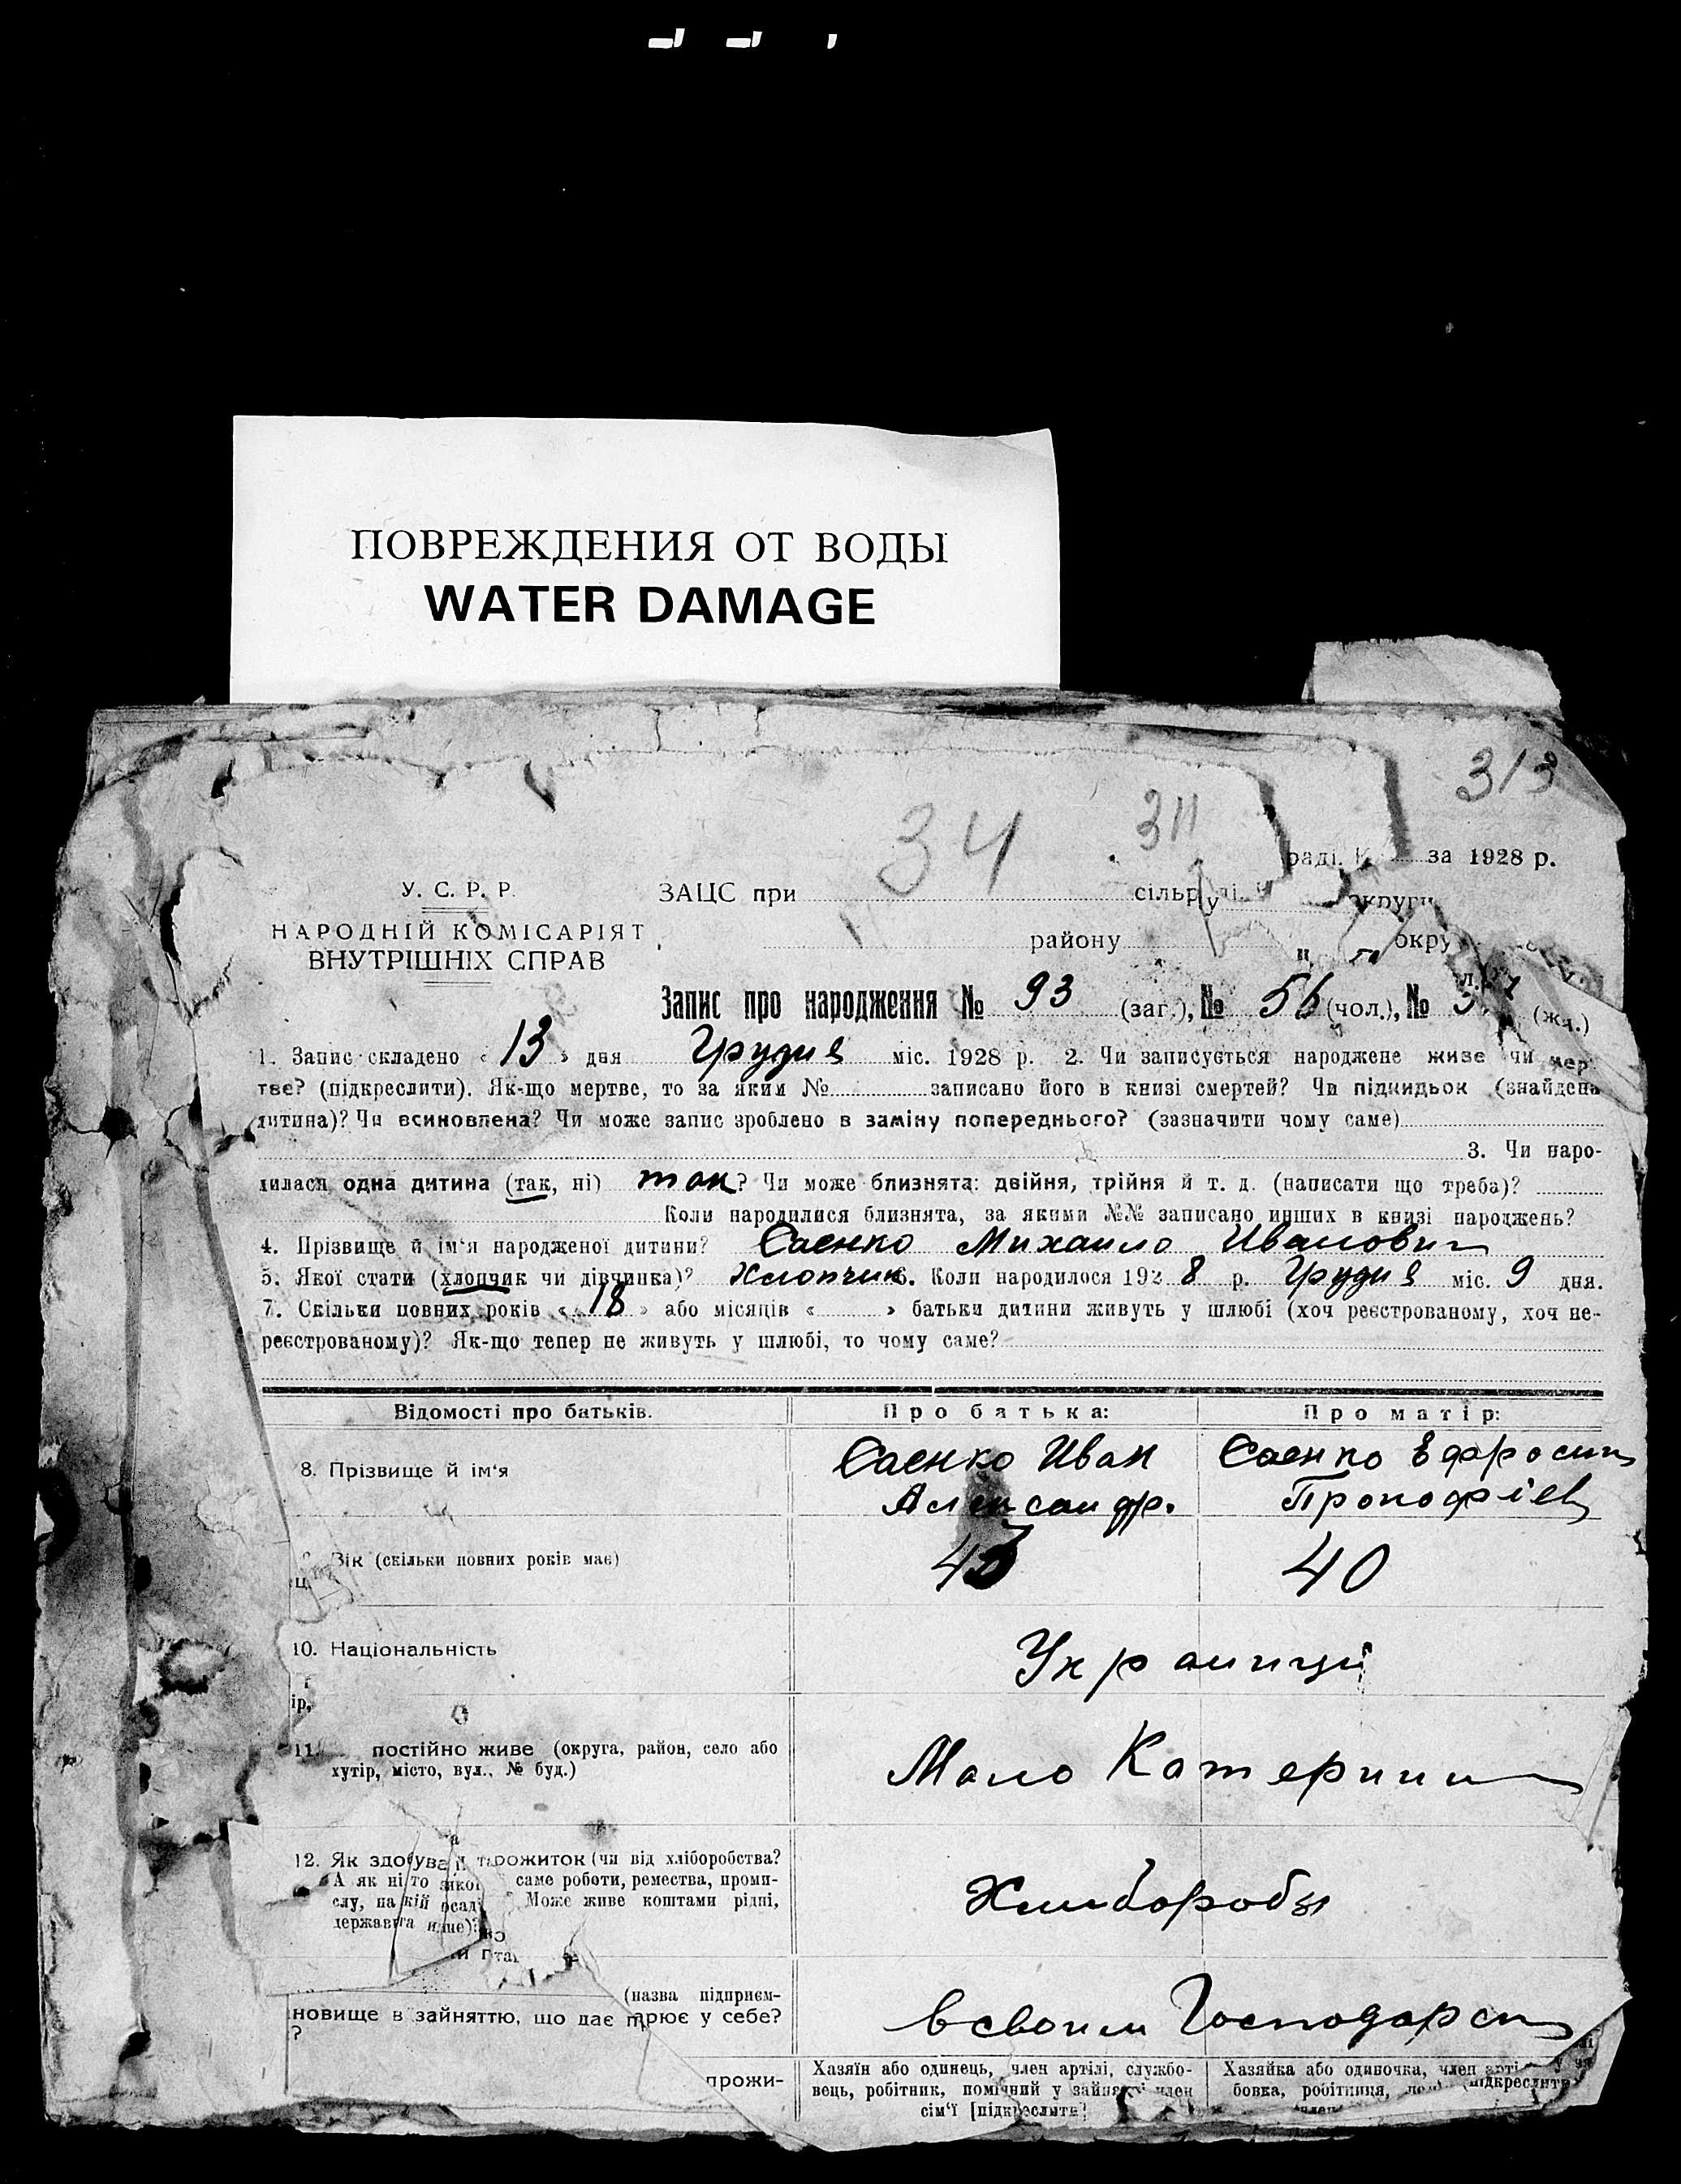 ПОВРЕЖДЕНИЯ ОТ ВОДЫ
WATER DAMAGE
313
34 311
за 1928 р.
У. С. Р. Р.
ЗАЦС при сільр
НАРОДНІЙ КОМІСАРІЯТ
ВНУТРІШНІХ СПРАВ
району окру
Запис про народження № 93 (заг.), № 56 (чол.), № (жн.)
1. Запис складено « 13 » дня Грудня міс. 1928 р. 2. Чи записується народжене живе чи мер-
тве? (підкреслити). Як-що мертве, то за яким № записано його в книзі смертей? Чи підкидьок (знайдена
дитина)? Чи всиновлена? Чи може запис зроблено в заміну попереднього? (зазначити чому саме)
3. Чи наро-
дилася одна дитина (так, ні) так? Чи може близнята: двійня, трійня й т. д. (написати що треба)?
Коли народилися близнята, за якими №№ записано инших в книзі народжень?
4. Прізвище й ім'я народженої дитини? Саєнко Михаило Иванович
5. Якої стати (хлопчик чи дівчинка)? Хлопчик 6. Коли народилося 1928 р. Грудня міс. 9 дня.
7. Скільки повних років « 18 » або місяців « » батьки дитини живуть у шлюбі (хоч реєстрованому, хоч не-
реєстрованому)? Як-що тепер не живуть у шлюбі, то чому саме?
Відомості про батьків. Про батька: Про матір:
8. Прізвище й ім'я
Саєнко Иван Саєнко Ефросин
Александр. Прокофіев
Вік (скільки повних років має) 40
10. Національність Украинци
ір,
11. постійно живе (округа, район, село або
хутір, місто, вул., № буд.)
Мало Катерин
12. Як здобува прожиток (чи від хліборобства?
А як ні то якої саме роботи, ремества, проми-
слу, на кій посаді Може живе коштами рідні,
держави та инше)?
Хлиборобы
(назва підприєм-
новище в зайняттю, що дає у себе?
в своим Господарст
прожи-
Хазяїн або одинець, член артілі, службо-
вець, робітник, помічний у зайнятті член
сім'ї [підкреслити]
Хазяйка або одиночка, член арті
бовка, робітниця, підкреслити